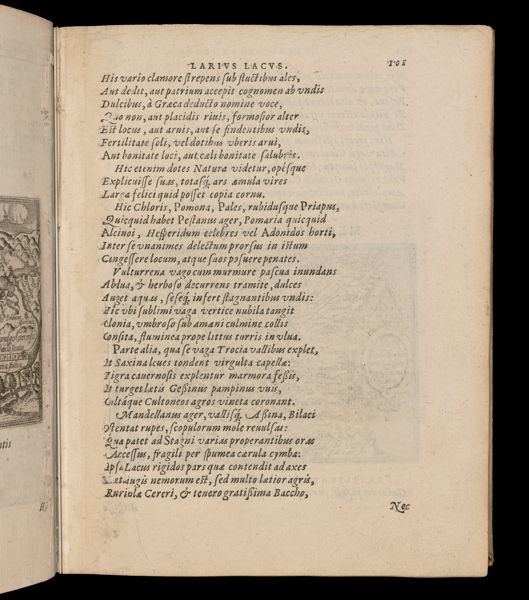 LARIVS LACVS. 101
His vario clamore strepens sub fluctibus ales,
Aut dedit, aut patrium accepit cognomen ab vndis
Dulcibus, à Græca deducto nomine voce,
Quo non, aut placidis riuis, formosior alter
Est locus, aut aruis, aut se findentibus vndis,
Fertilitate soli, vel dotibus vberis arui,
Aut bonitate loci, aut cæli bonitate salubris.
Hic etenim dotes Natura videtur, opésque
Explicuisse suas, totasq́; ars æmula vires
Larga felici quid posset copia cornu.
Hic Chloris, Pomona, Pales, rubidusque Priapus,
Quicquid habet Pestanus ager, Pomaria quicquid
Alcinoi, Hesperidum celebres vel Adonidos horti,
Inter se vnanimes delectum prorsus in istum
Congessere locum, atque suos posuere penates.
Vulturrena vago cum murmure pascua inundans
Abdua, & herboso decurrens tramite, dulces
Auget aquas, seseq́; infert stagnantibus vndis:
Hic vbi sublimi vaga vertice nubila tangit
Clonia, vmbroso sub amæni culmine collis
Consita, fluminea prope littus turris in vlua.
Parte alia, qua se vaga Trocia vallibus explet,
Et Saxina leues tondent virgulta capellæ:
Pigra cauernosis explentur marmora fessis,
Et turget lætis Gessinus pampinus vuis,
Cultáque Cultoneos agros vineta coronant.
Mandellanus ager, vallisq́; Assina, Bilaci
Ostentat rupes, scopulorum mole reuulsas:
Qua patet ad Stagni varias properantibus oras
Accessus, fragili per spumea cærula cymba:
Ipsa Lacus rigidos pars quæ contendit ad axes
nemorum est, sed multo lætior agris,
Ruriolæ Cereri, & tenero gratissima Baccho,
Nec